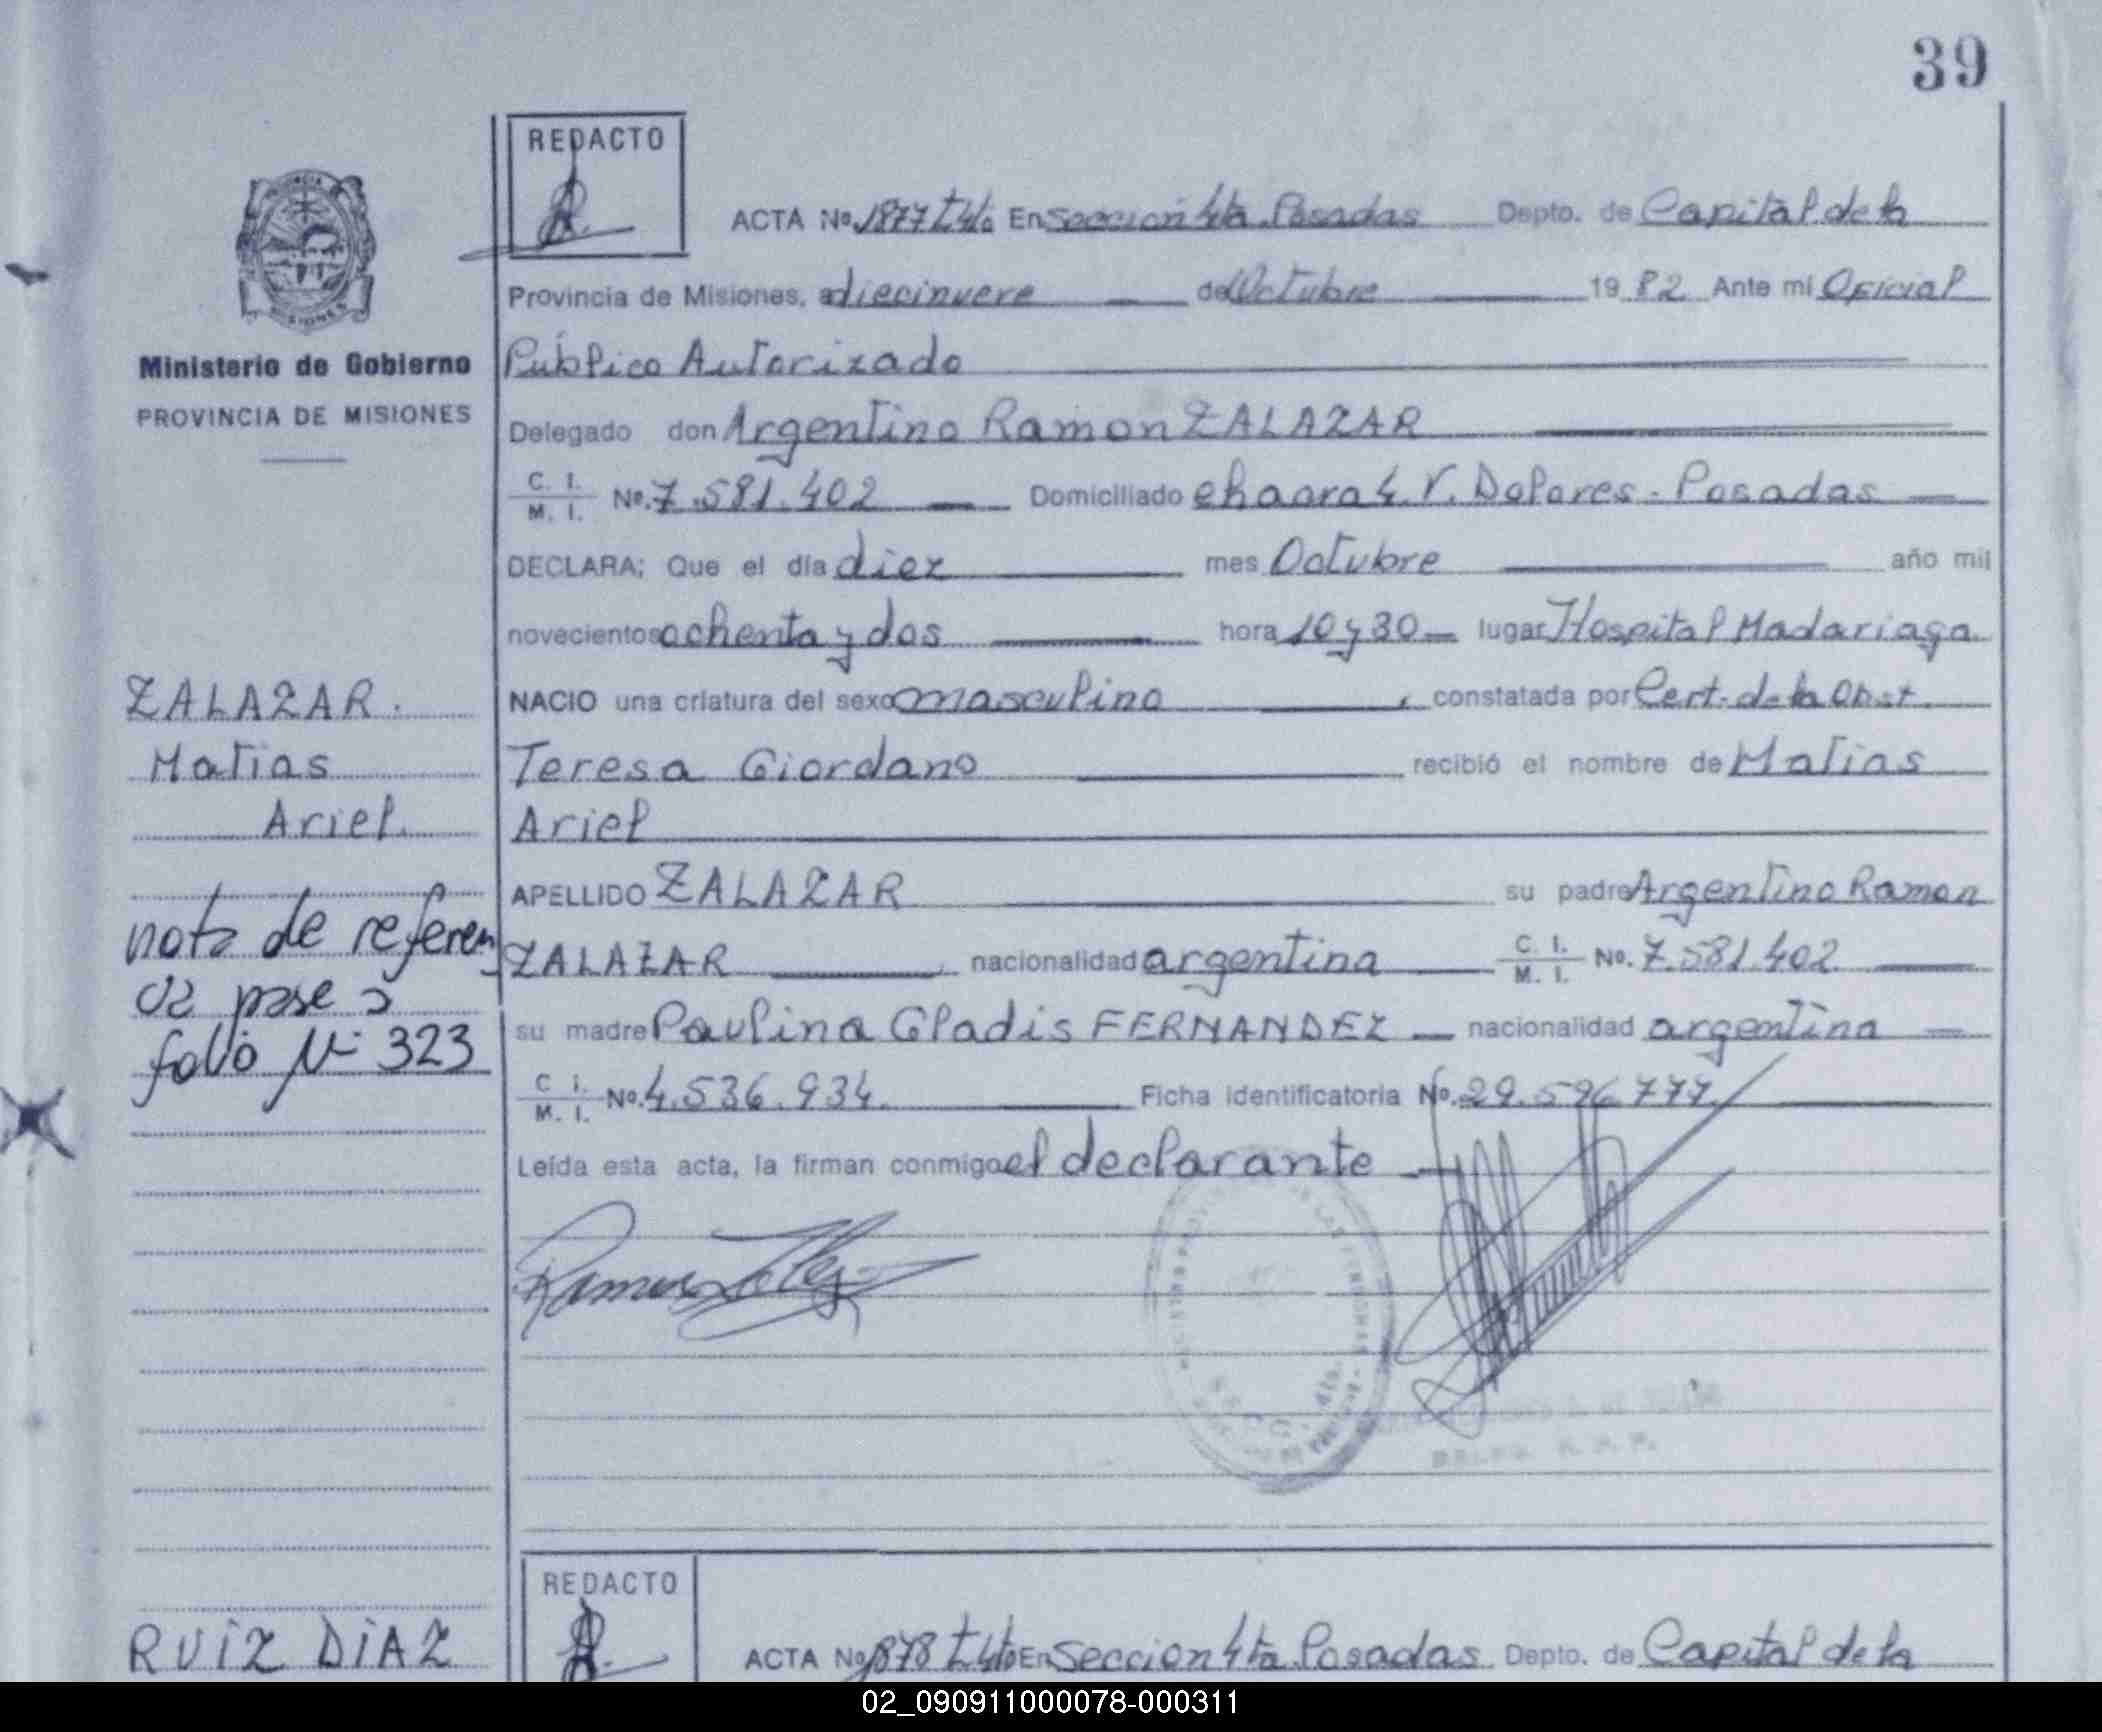 39
REDACTO
ACTA No. 1877 t 4to En Sección 4ta. Posadas Depto. de Capital de la
Provincia de Misiones, a diecinueve de Octubre 1982 Ante mí Oficial
Público Autorizado
Delegado don Argentino Ramon ZALAZAR
C. I. / M. I. No. 7.581.402 Domiciliado chacra 4. V. Dolores - Posadas
DECLARA; Que el día diez mes Octubre año mil
novecientos ochenta y dos hora 10 y 30 lugar Hospital Madariaga.
NACIO una criatura del sexo masculino, constatada por Cert. de la Obst.
Teresa Giordano recibió el nombre de Matias
Ariel
APELLIDO ZALAZAR su padre Argentino Ramon
ZALAZAR nacionalidad argentina C. I. / M. I. No. 7.581.402
su madre Paulina Gladis FERNANDEZ nacionalidad argentina
C. I. / M. I. No. 4.536.934. Ficha identificatoria No. 29.596.777.
Leída esta acta, la firman conmigo el declarante
Ministerio de Gobierno
PROVINCIA DE MISIONES
ZALAZAR.
Matias
Ariel.
nota de referen
cia pase a
folio Nº 323
REDACTO
RUIZ DIAZ
ACTA No. 1878 t 4to En Seccion 4ta. Posadas Depto. de Capital de la
02_090911000078-000311